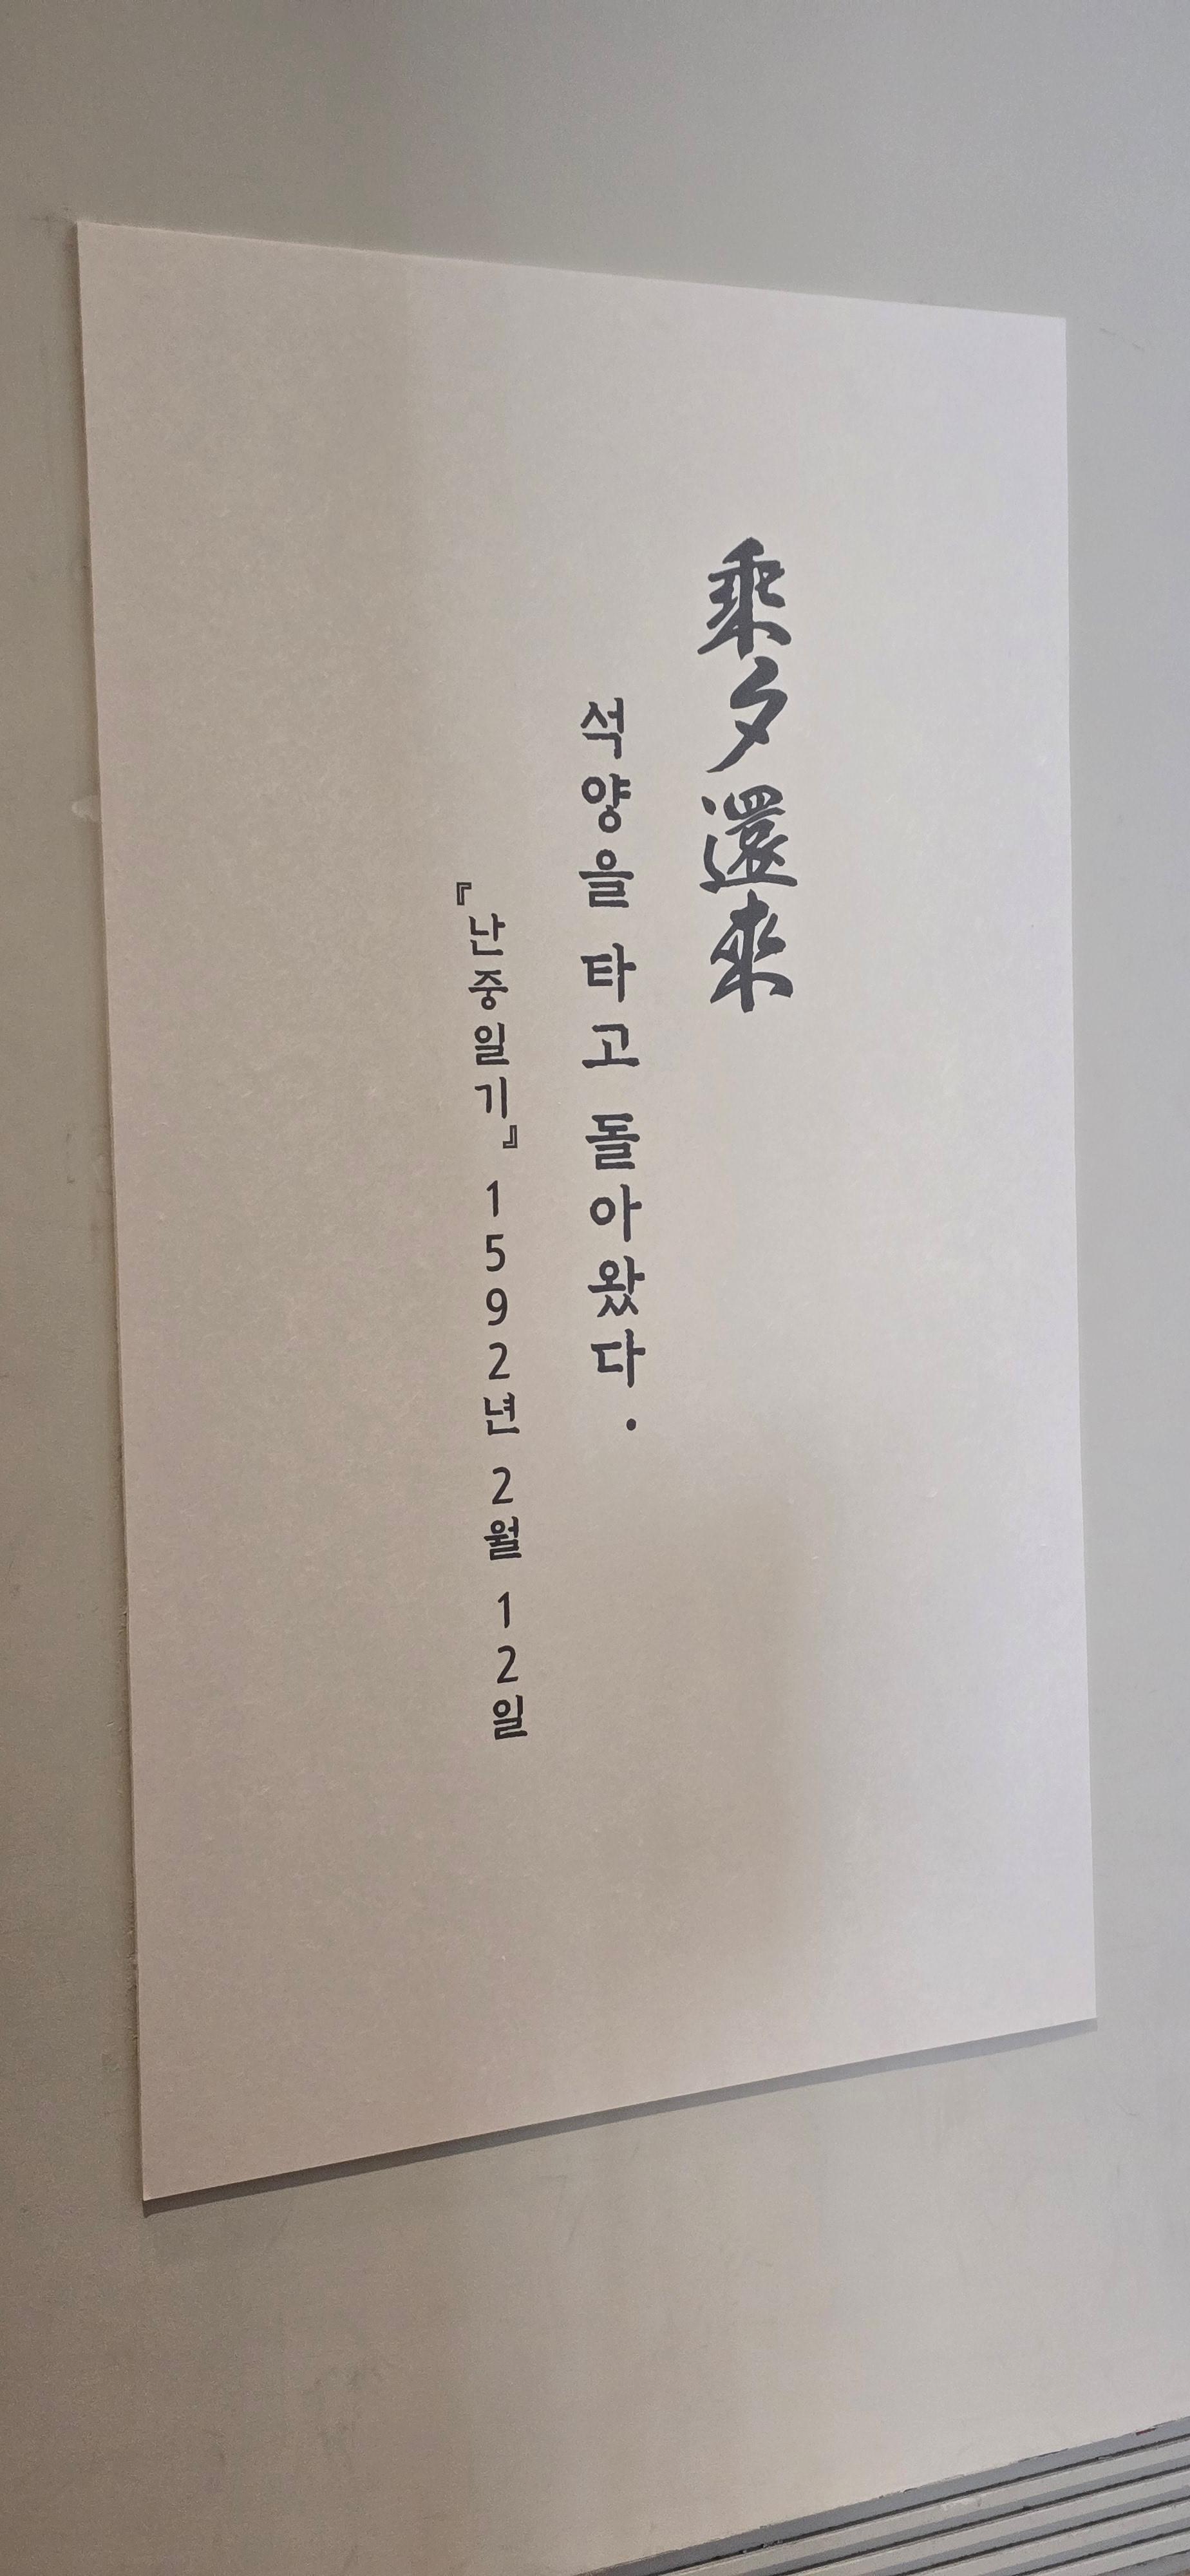 乘夕還來
석양을 타고 돌아왔다.
『난중일기』 1592년 2월 12일